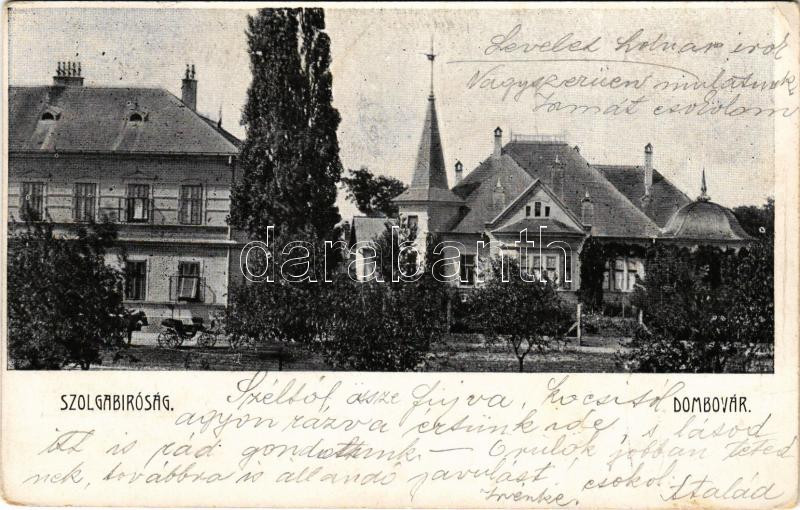 Levelet holnap irok
Nagyszerüen mulatunk
Tamát csókolom
darabanth
SZOLGABIRÓSÁG.
DOMBOVÁR.
Széltől össze fújva, kocsitól
agyon rázva értünk ide, s lásod
itt is rád gondoltunk. — Örülök jobban
nek, továbbra is állandó javulást csókol
Irénke.